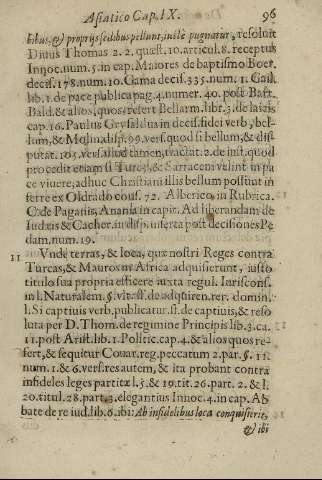 Asiatico Cap. IX. 96
libus, & proprijs sedibus pellunt, iustè pugnatur, resoluit
Diuus Thomas 2. 2. quæst. 10. articul. 8. receptus
Innoc. num. 5. in cap. Maiores de baptismo Boer.
decis. 178. num. 10. Gama decis. 335. num. 1. Gail.
lib. 1. de pace publica pag. 4. numer. 40. post Bart.
Bald. & alios, quos refert Bellarm. libr. 3. de laicis
cap. 16. Paulus Gryfaldus in decis. fidei verb, bel-
lum, & Molin. disp. 99. vers. quod si bellum, & dis-
putat. 105. vers. illud tamen, tractat. 2. de inst. quod
procedit etiam si Turcę, & Sarraceni velint in pa
ce viuere, adhuc Christiani illis bellum possunt in
ferre ex Oldrado cons. 72. Alberico, in Rubrica.
C. de Paganis, Anania in capit. Ad liberandam de
Iudæis & Cacher. in disp. inserta post decisiones Pe
dam. num. 19.
11 Vnde terras, & loca, quæ nostri Reges contra
Turcas, & Mauros in Africa adquisierunt, iusto
titulo sua propria efficere iuxta regul. Iurisconf.
in l. Naturalem. §. vlt. ff. de adquiren. rer. domin.
l. Si captiuis verb. publicatur. ff. de captiuis, & reso
luta per D. Thom. de regimine Principis lib. 3. ca.
11. post Arist. lib. 1. Politic. cap. 4. & alios quos re-
fert, & sequitur Couar. reg. peccatum 2. par. §. 11.
num. 1. & 6. vers. res autem, & ita probant contra
infideles leges partitæ l. 5. & 19. tit. 26. part. 2. & l.
20. titul. 28. part. 3. elegantius Innoc. 4. in cap. Ab
bate de re iud. lib. 6. ibi: Ab infidelibus loca conquisierit,
& ibi